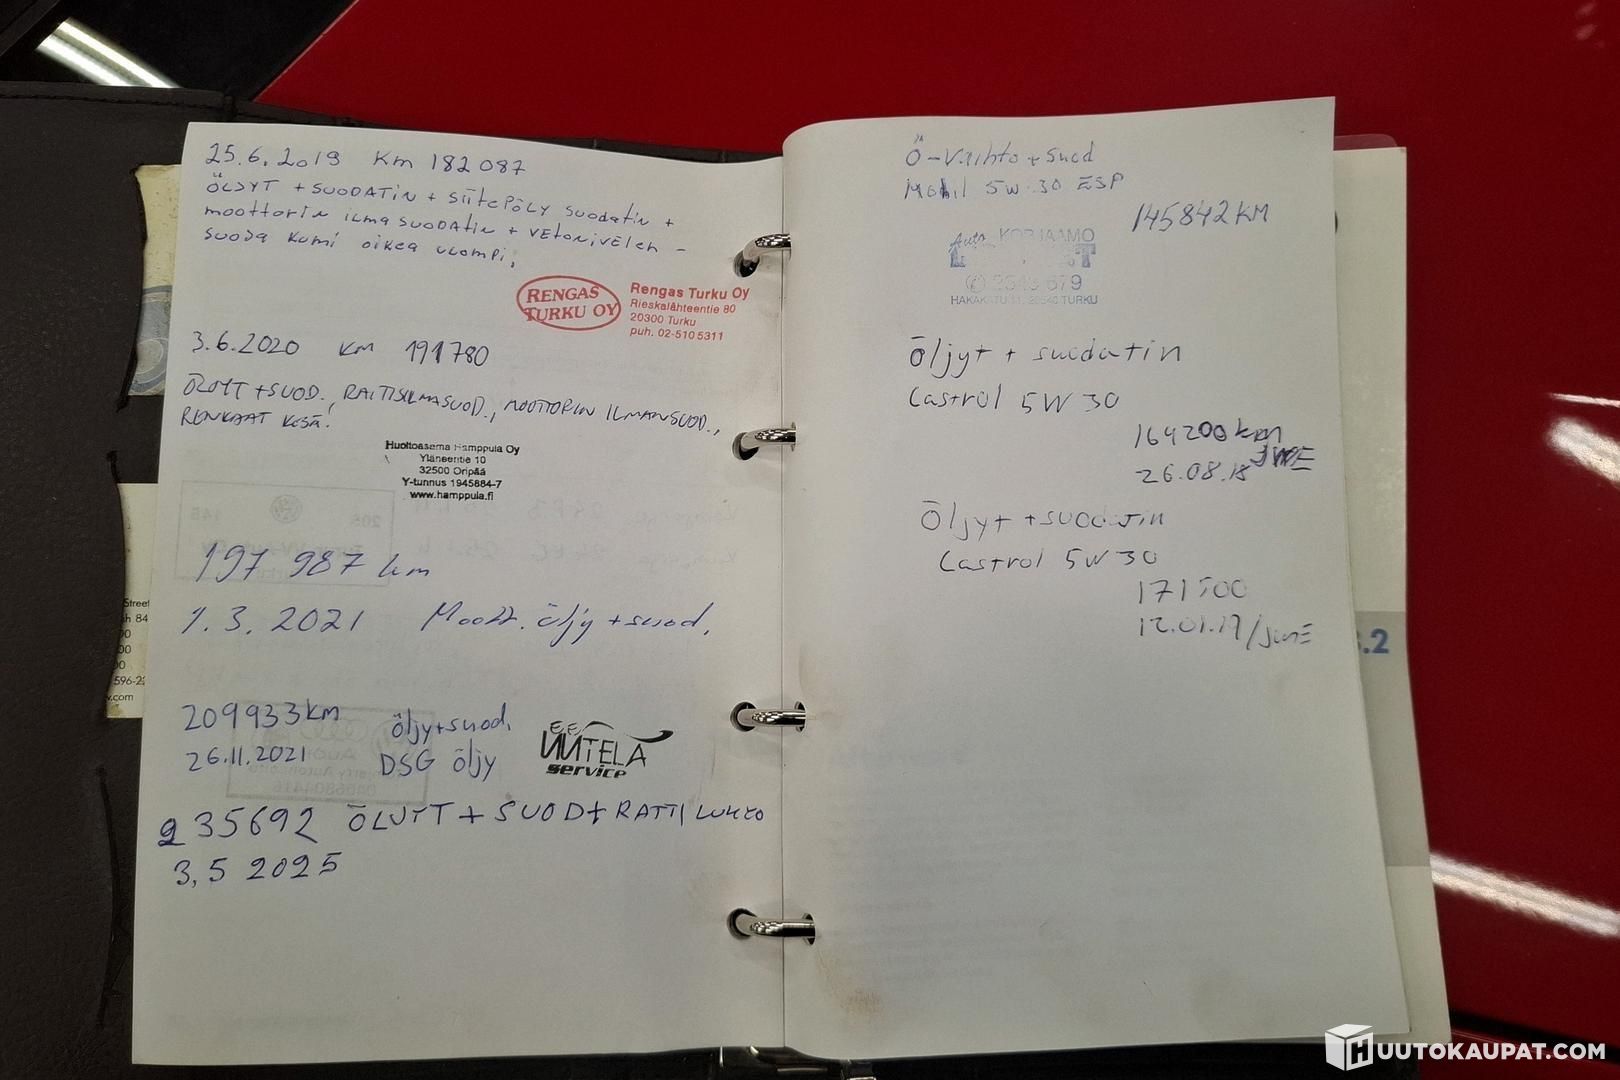 25.6.2019 Km 182 087
ÖLJYT + SUODATIN + SIITEPÖLY SUODATIN +
MOOTTORIN ILMASUODATIN + VETONIVELEN -
SUOJA KUMI OIKEA ULOMPI.
RENGAS
TURKU OY
Rengas Turku Oy
Rieskalähteentie 80
20300 Turku
puh. 02-510 5311
3.6.2020 KM 191780
ÖLJYT + SUOD., RAITISILMASUOD., MOOTTORIN ILMANSUOD.,
RENKAAT KESÄ.
Huoltoasema Hamppula Oy
Yläneentie 10
32500 Oripää
Y-tunnus 1945884-7
www.hamppula.fi
197 987 km
1.3.2021 Moott. öljy + suod.
209933 km öljy+suod.
26.11.2021 DSG öljy
E.E.
UUTELA
service
235692 ÖLJYT + SUOD + RATTILUKKO
3,5 2025
Ö-vaihto + suod
Mobil 5W-30 ESP
145842 KM
Auto KORJAAMO
HAKAKATU 11, 20540 TURKU
Öljyt + suodatin
Castrol 5W30
164200 km
26.08.18
Öljyt + suodatin
Castrol 5W30
171500
12.01.19/
Street
h 84
00
596-22
.com
.2
HUUTOKAUPAT.COM